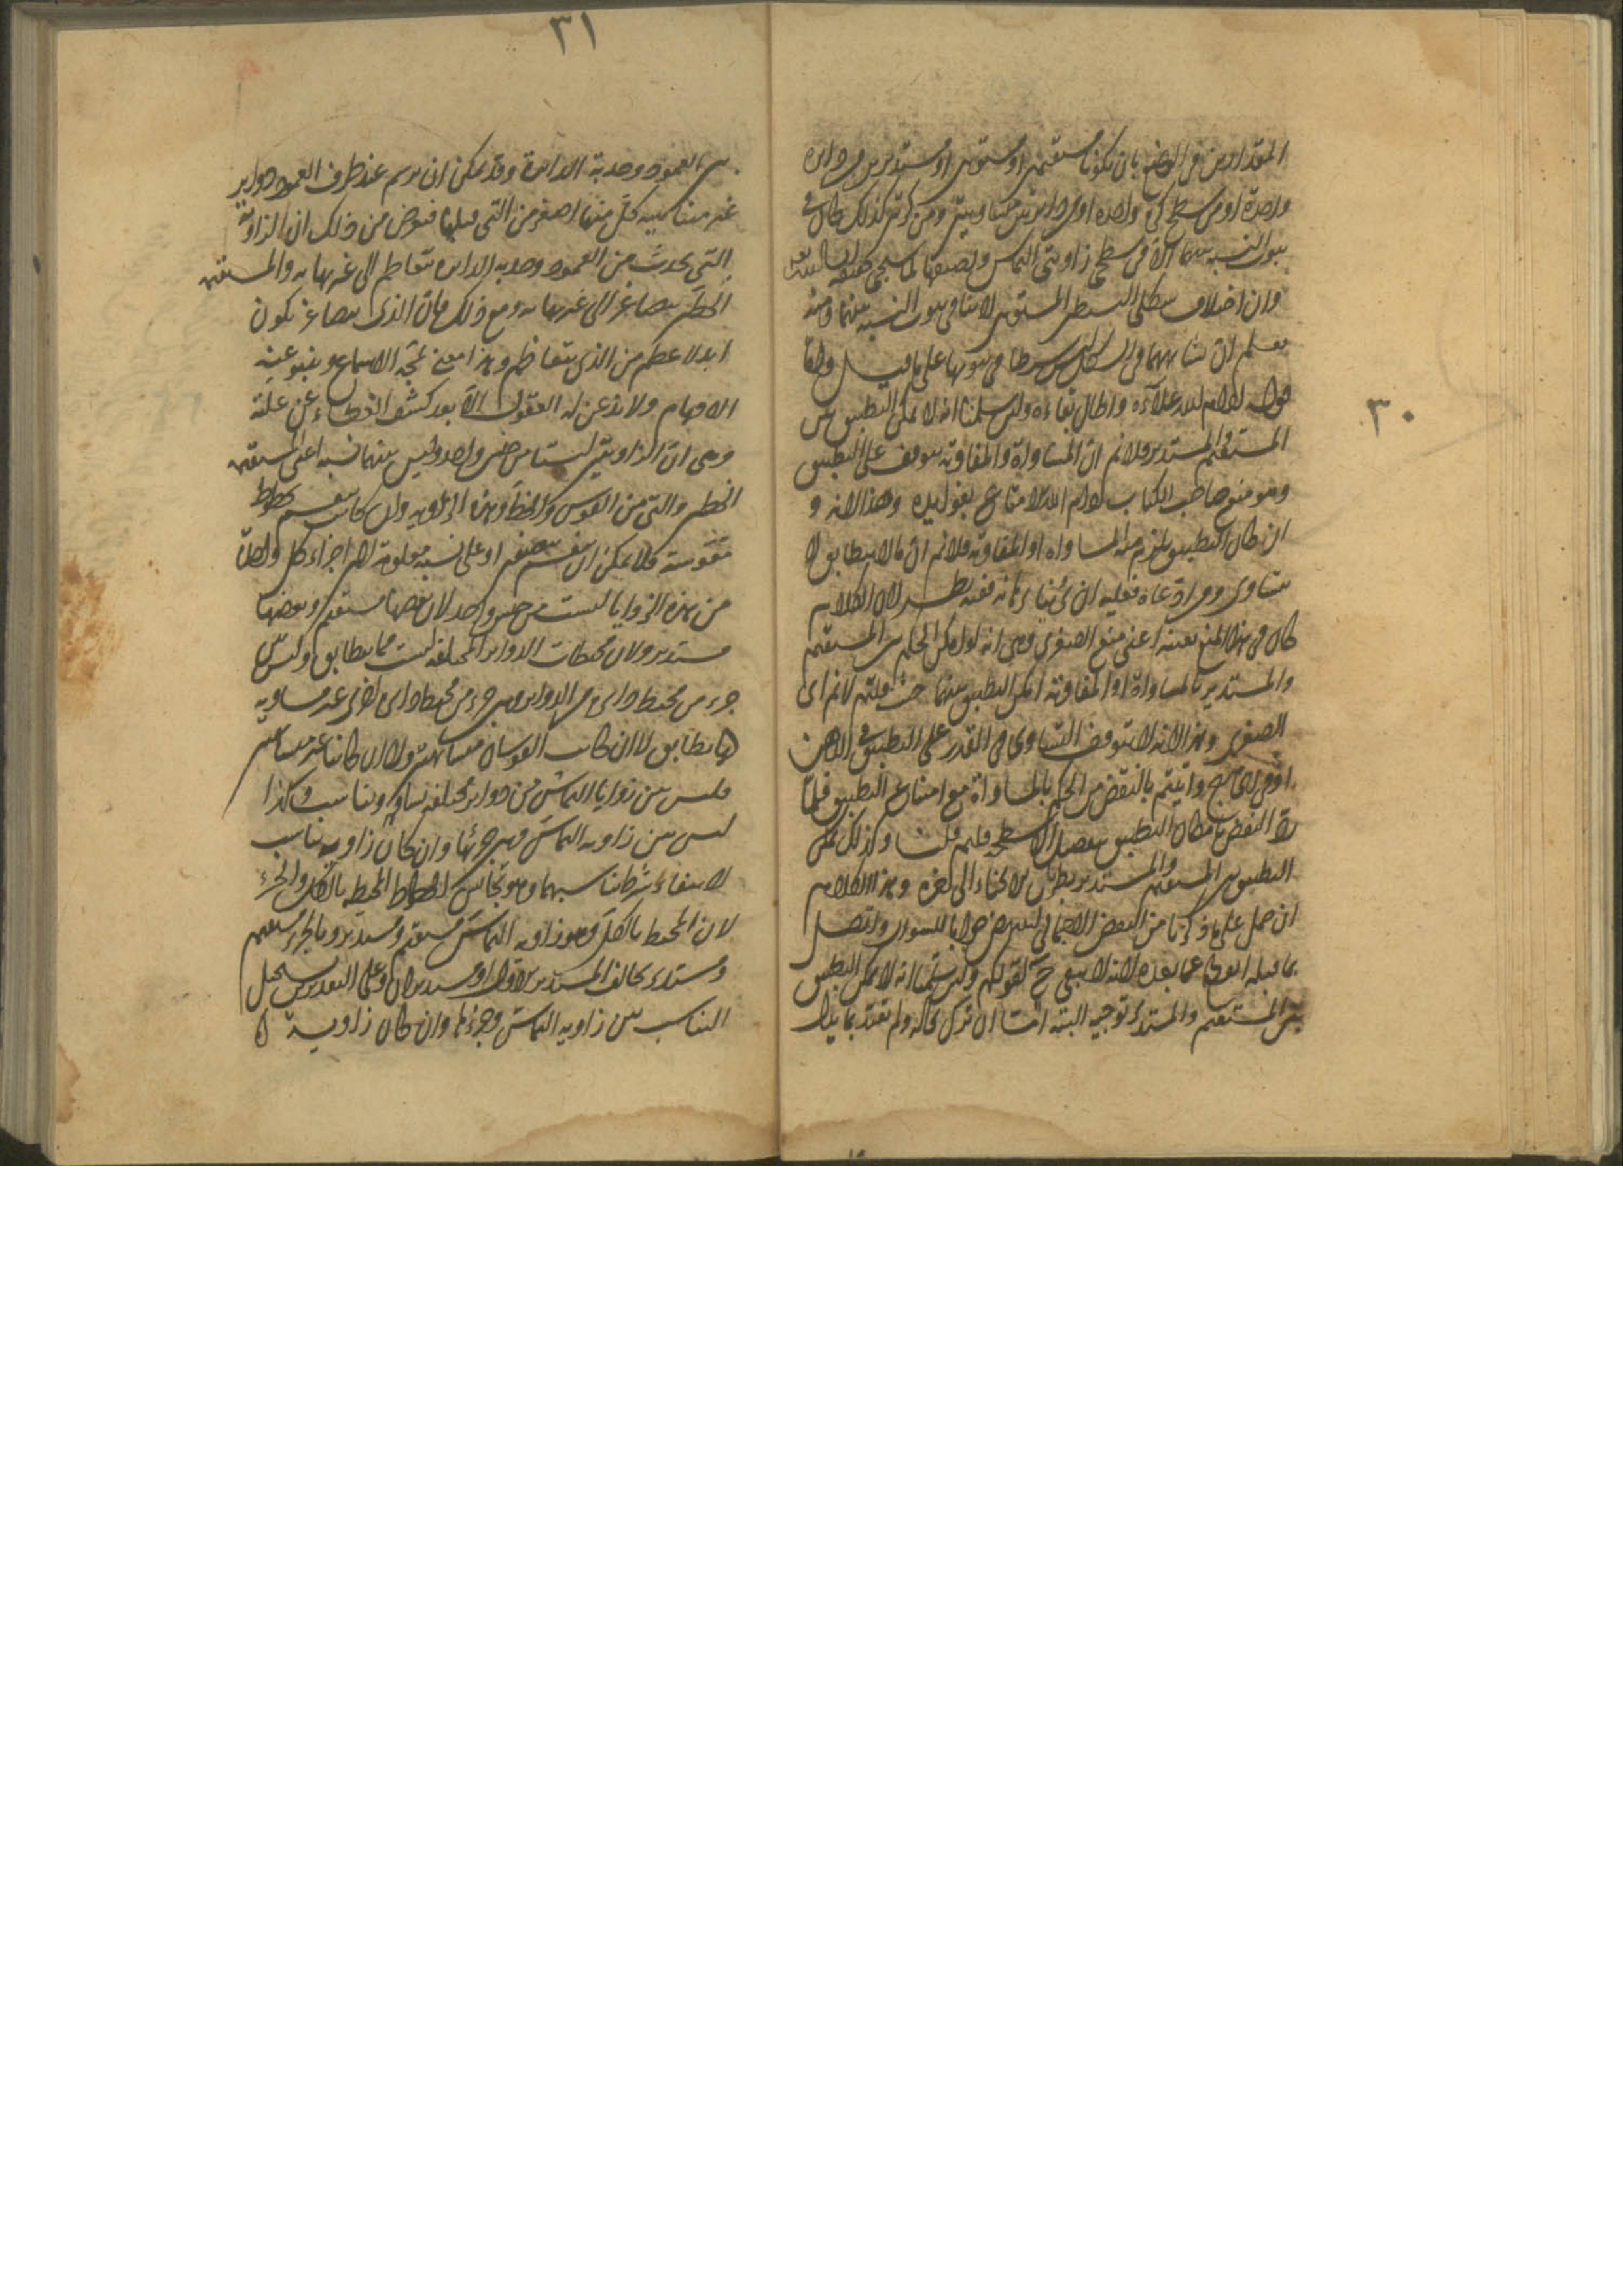 ٣٠
المقدارين في الوضع بان يكونا مستقيمين او مستويين او مستديرين من دايرة
واحدة او من سطح كرة واحدة او من دايرتين متساويتين ومن كرتين كذلك
ثبوت النسبة بينهما الا في سطحي زاويتي التماس ونصفها لما سيجي
وان اختلاف شكلي السطحين المستويين لا ينافي ثبوت النسبة بينهما ومنه
يعلم ان تشابههما في الشكل ليس شرطا في ثبوتها على ما قيل واما
قوله ادام الله علاءه واطال بقاءه ولئن سلمنا انه لا يمكن التطبيق بين
المستقيم والمستدير فلا نم ان المساواة والمفاوتة يتوقف على التطبيق
وهو منع صاحب الكتاب ادام الله الامتاع بفوايده وهذا لانه
ان كان التطبيق يلزم منه المساواة او المفاوتة فلا نم ان ما لا يتطابق لا
يتساوى ومن ادعاه فعليه ان يأتينا ببرهانه ففيه نظر لان الكلام
كان في هذا المنع بعينه اعني منع الصغرى وهي انه لو امكن الحكم بين المستقيم
والمستدير بالمساواة او المفاوتة امكن التطبيق بينهما حيث قلتم لا نم اى
الصغرى وهذا لانه لا يتوقف التساوى في القدر على التطبيق في الذهن
او في الخارج واتيتم بالنقض من الحكم بالمساواة مع امتناع التطبيق فلما
رد النقض بامكان التطبيق بتفصيل الاسطحة قلتم قلنا وكذلك يمكن
التطبيق بين المستقيم والمستدير بطريان الانحناء الى اخره وهذا الكلام
ان حمل على ما ذكرنا من النقض الاجمالي ليصير جوابا للسؤال واتصل
بما قبله انقطع عما بعده لانه لا يبقى ح لقولكم ولئن سلمنا انه لا يمكن التطبيق
بين المستقيم والمستدير توجيه البتة اما ان ترك بحاله ولم يقيد بما يدل
٣١
بين العمود وحدبة الدايرة وقد يمكن ان يرسم عند طرف العمود دواير
غير متناهية كل منها اصغر من التي قبلها فيعرض من ذلك ان الزاوية
التي يحدث من العمود وحدبة الدايرة يتعاظم الى غير نهاية والمستقيمة
الخطين يتصاغر الى غير نهاية ومع ذلك فان الذى يتصاغر يكون
ابدا اعظم من الذى يتعاظم وهذا معنى تمجه الاسماع وينبو عنه
الافهام ولا يذعن له العقول الا بعد كشف الغطاء عن علته
وهي ان الزاويتين ليستا من جنس واحد وليس بينهما نسبة اعني المستقيمة
الخطين والتي من القوس والخط وهذه الزاوية وان كانت ينقسم بخطوط
مقوسة فلا يمكن ان ينقسم بنصفين او على نسبة معلومة لان اجزاء كل واحدة
من هذه الزوايا ليست من جنس واحد لان بعضها مستقيم وبعضها
مستدير ولان محيطات الدواير المختلفة ليست مما يتطابق وليس بين
جزء من محيط دايرة من الدواير وبين جزء من محيط دايرة اخرى غير مساوية
لها تطابق لا ان كانت القوسان متشابهتين ولا ان كانتا غير متشابهتين
فليس بين زوايا التماس من دواير مختلفة تساو وتناسب وكذا
ليس بين زاوية التماس وبين جزئها وان كان زاوية تناسب
لانتفاء شرط تناسبهما وهو تجانس الخطوط المحيطة بالكل والجزء
لان المحيط بالكل وهو زاوية التماس مستقيم ومستدير وبالجزء مستقيم
ومستدير يخالف المستدير الاول او مستديران وعلى التقديرين يستحيل
التناسب بين زاوية التماس وجزئها وان كان زاوية